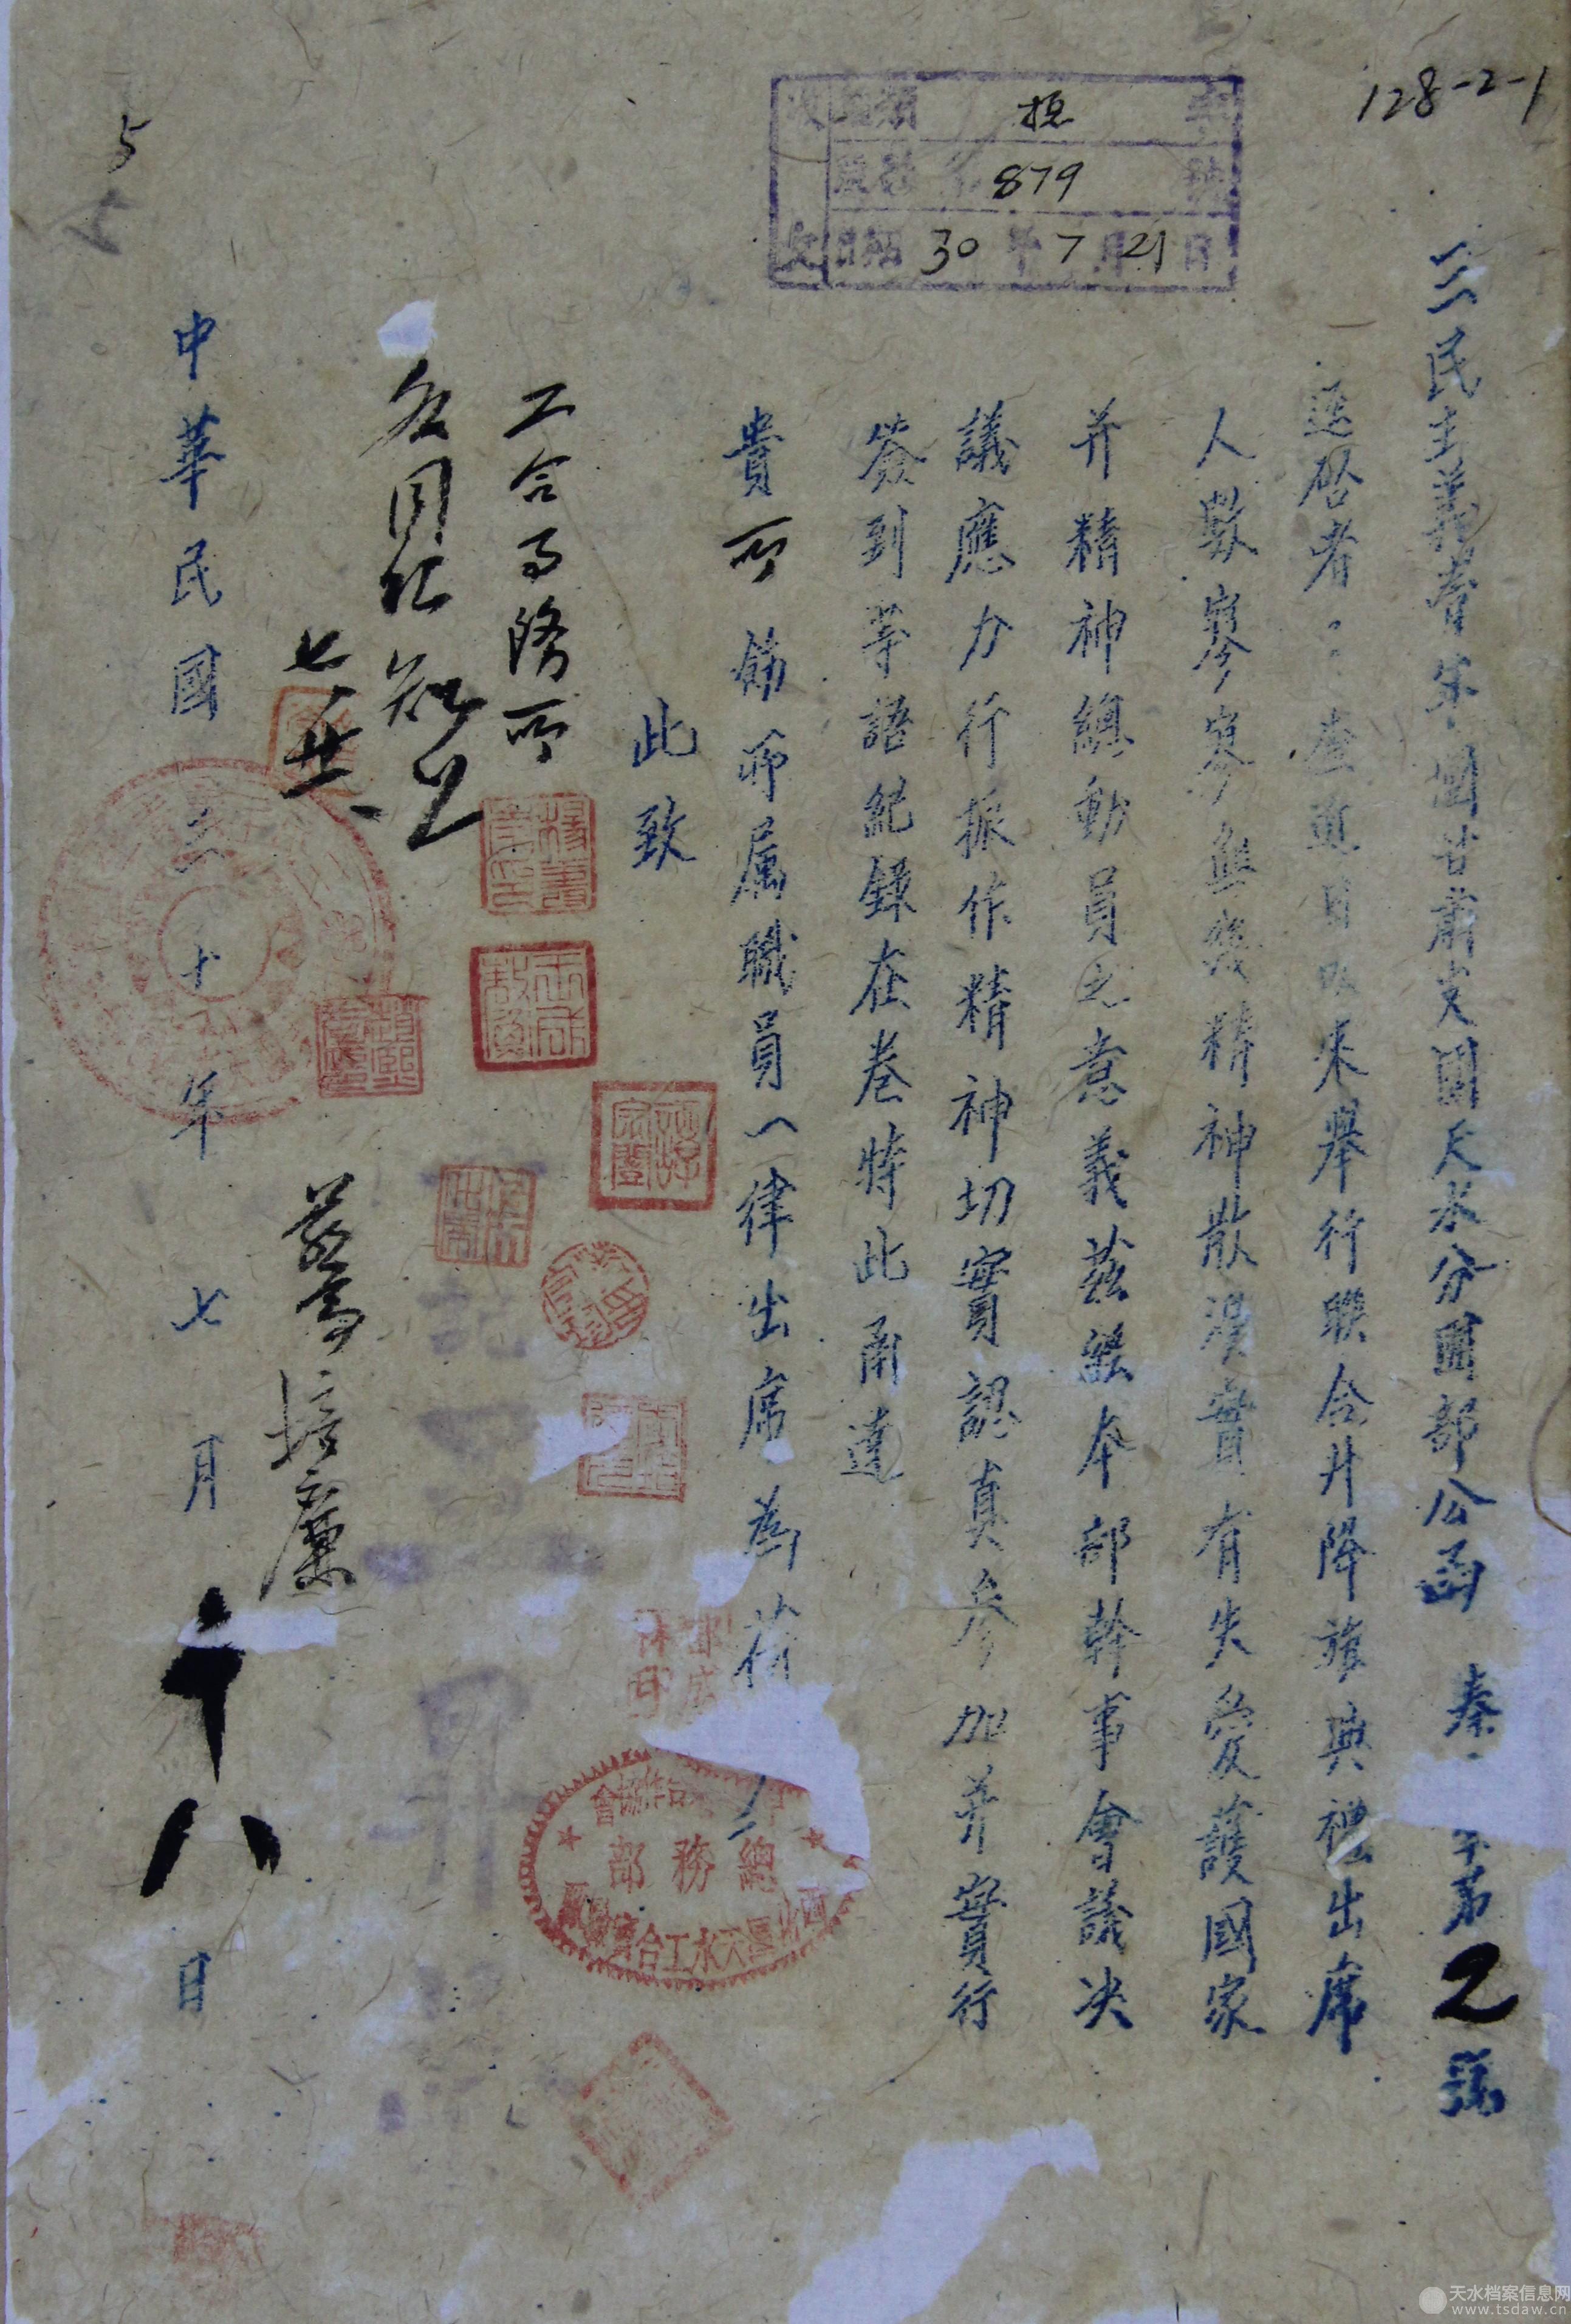 128-2-1
三民主義青年團甘肅支團天水分團部公函 秦 字第2號
逕啓者：查近日以來舉行聯合升降旗典禮出席
人數寥寥無幾精神散漫實有失愛護國家
并精神總動員之意義茲經本部幹事會議決
議應力行振作精神切實認真參加并實行
簽到等語紀錄在卷特此函達
貴所飭所屬職員一律出席為荷
此致
工合事務所
各同仁知之
七 廿
培廉
中華民國三十年七月十八日
收文
總
879 號
日期 30年7月21日
5
總務部
天水工合
天水档案信息网
www.tsdaw.cn